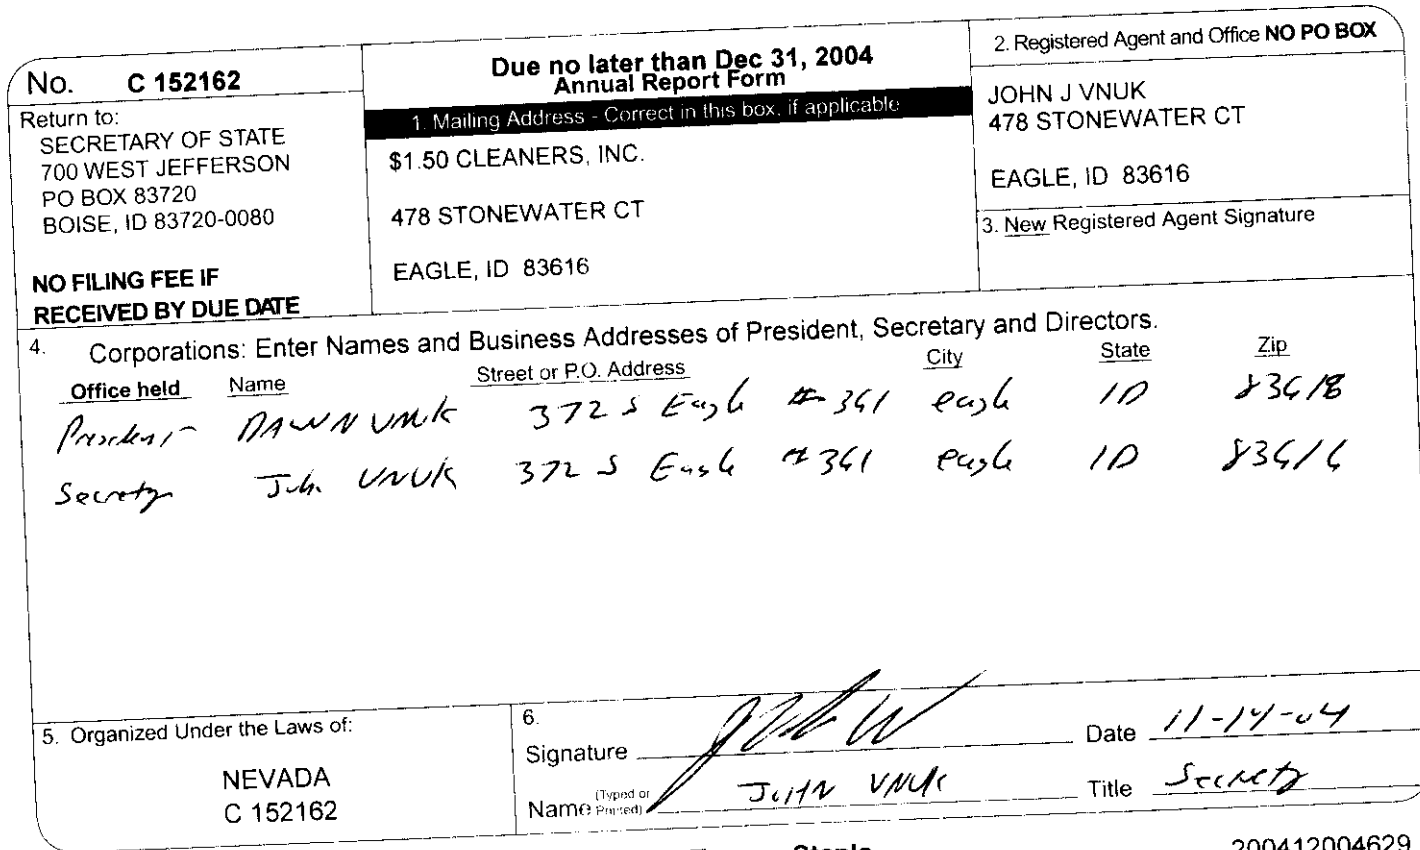 No. C 152162
Return to:
SECRETARY OF STATE
700 WEST JEFFERSON
PO BOX 83720
BOISE, ID 83720-0080
NO FILING FEE IF
RECEIVED BY DUE DATE
Due no later than Dec 31, 2004
Annual Report Form
1. Mailing Address - Correct in this box, if applicable
$1.50 CLEANERS, INC.
478 STONEWATER CT
EAGLE, ID 83616
2. Registered Agent and Office NO PO BOX
JOHN J VNUK
478 STONEWATER CT
EAGLE, ID 83616
3. New Registered Agent Signature
4. Corporations: Enter Names and Business Addresses of President, Secretary and Directors.
Office held Name Street or P.O. Address City State Zip
President DAWN VNUK 372 S Eagle # 361 eagle ID 83616
Secretary John VNUK 372 S Eagle # 361 eagle ID 83616
5. Organized Under the Laws of:
NEVADA
C 152162
6.
Signature Date 11-14-04
Name (Typed or Printed) JOHN VNUK Title Secretary
200412004629